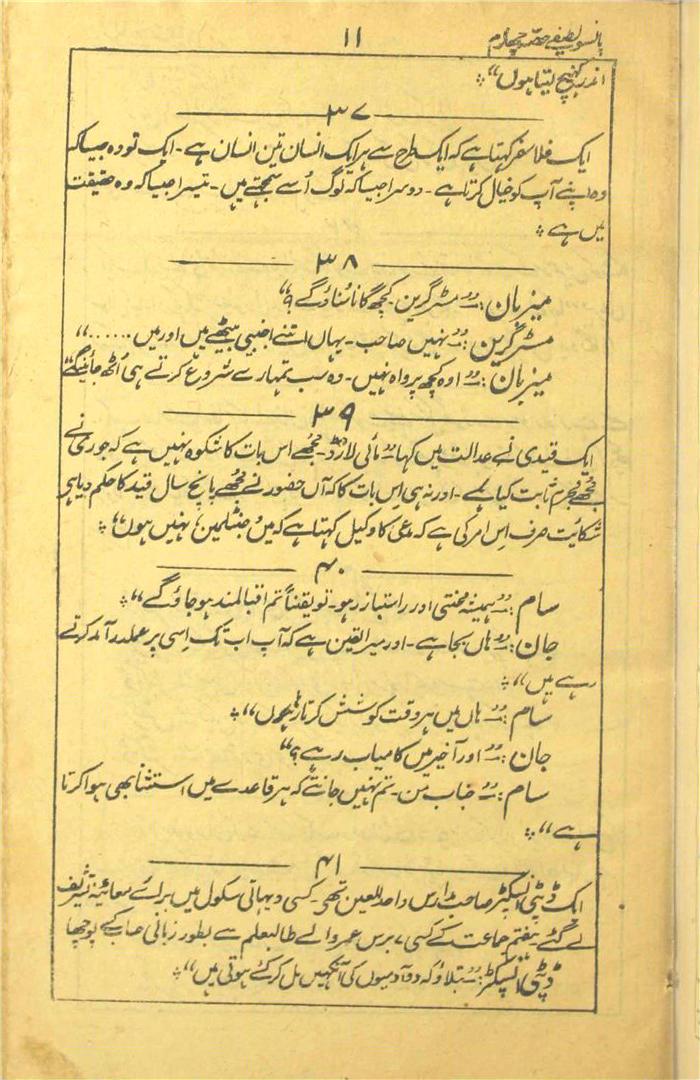 پانسو لطیفے حصہ چہارم
۱۱
اندر کھینچ لیتا ہوں“ ؞
۳۷
ایک فلاسفر کہتا ہے کہ ایک طرح سے ہر ایک انسان تین انسان ہے۔ ایک تو وہ جیسا کہ
وہ اپنے آپ کو خیال کرتا ہے۔ دوسرا جیسا کہ لوگ اُسے سمجھتے ہیں۔ تیسرا جیسا کہ وہ حقیقت
میں ہے ؞
۳۸
میزبان:۔ ”مسٹر گرین۔ کچھ گانا سُناؤ گے؟“
مسٹر گرین:۔ ”نہیں صاحب۔ یہاں اتنے اجنبی بیٹھے ہیں اور میں ......“
میزبان:۔ ”اوہ کچھ پرواہ نہیں۔ وہ سب تمہارے شروع کرتے ہی اُٹھ جائینگے“
۳۹
ایک قیدی نے عدالت میں کہا ”مائی لارڈ۔ مجھے اس بات کا شکوہ نہیں ہے کہ جوری نے
مجھے مجرم ثابت کیا ہے۔ اور نہ ہی اس بات کا کہ آں حضور نے مجھے پانچ سال قید کا حکم دیا ہی
شکائیت صرف اِس امر کی ہے کہ مدعی کا وکیل کہتا ہے کہ میں ’جنٹلمین‘ نہیں ہوں“ ؞
۴۰
سام:۔ ”ہمیشہ محنتی اور راستباز رہو۔ تو یقیناً تم اقبالمند ہو جاؤ گے“ ؞
جان:۔ ”ہاں بجا ہے۔ اور میرا یقین ہے کہ آپ اب تک اِسی پر عملدرآمد کرتے
رہے ہیں“ ؞
سام:۔ ”ہاں میں ہر وقت کوشش کرتا رہا ہوں“ ؞
جان:۔ ”اور آخیر میں کامیاب رہے؟“
سام:۔ ”جناب من۔ تم نہیں جانتے کہ ہر قاعدے میں استثنا بھی ہوا کرتا
ہے“ ؞
۴۱
ایک ڈپٹی انسپکٹر صاحب مدارس واحد العین تھے۔ کسی دیہاتی سکول میں برائے معائینہ تشریف
لے گئے۔ ہفتم جماعت کے کسی ۷ برس عمر والے طالبعلم سے بطور زبانی حساب کے پوچھا
ڈپٹی انسپکٹر:۔ ”بتلاؤ کہ دو آدمیوں کی آنکھیں مل کر کے ہوتی ہیں“ ؞